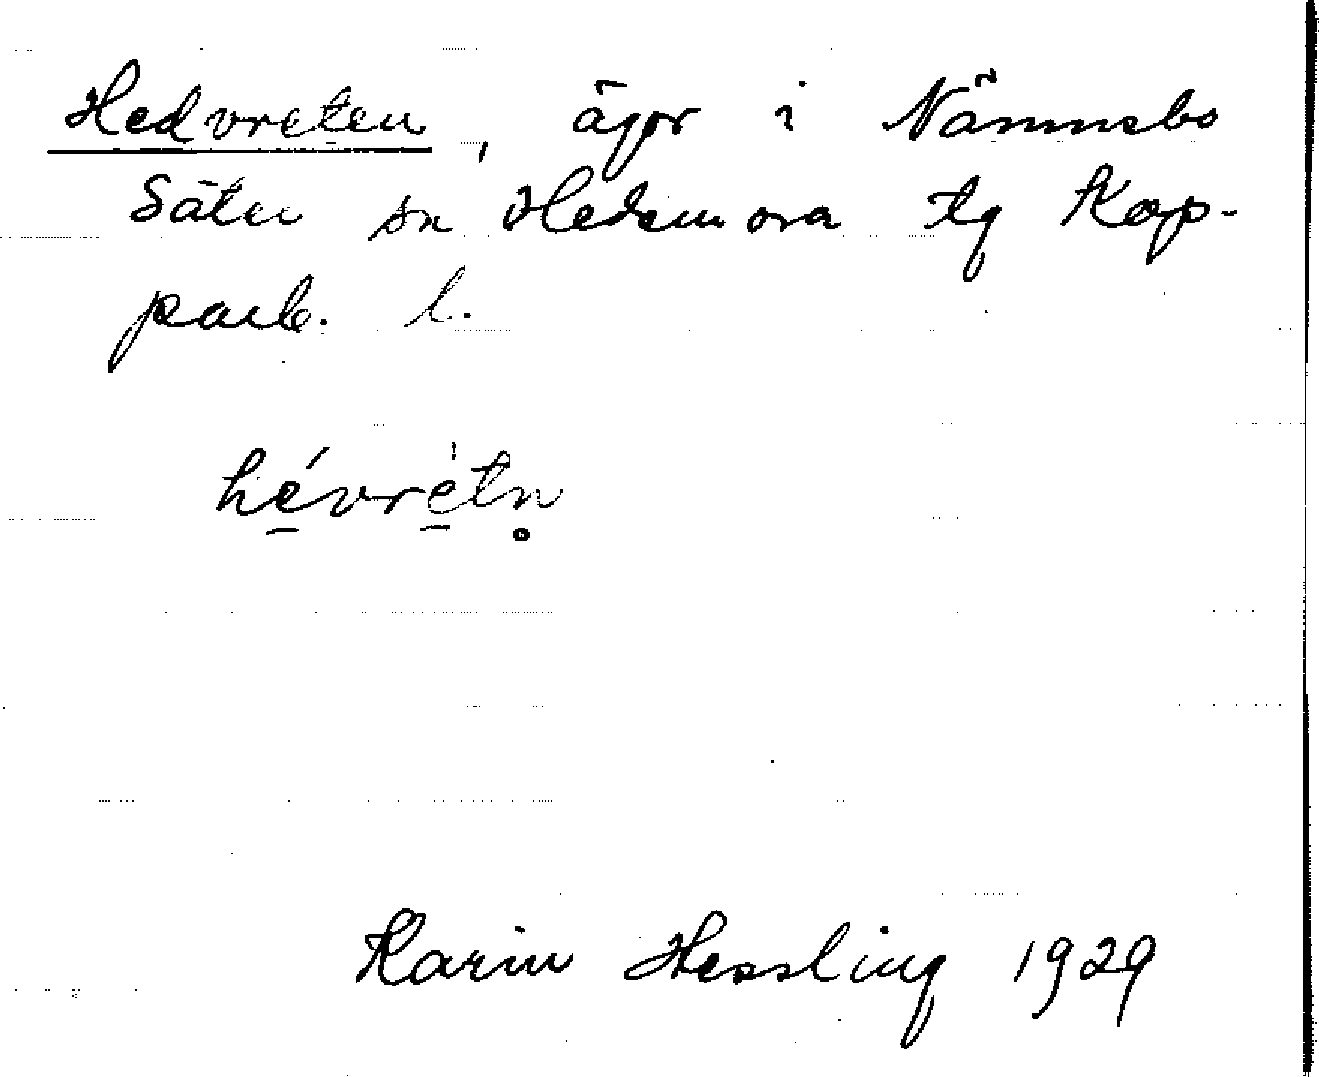 Hedvreten, ägor i Nämnsbo
Säter sn Hedemora tg Kop-
parb. l.
hé̱vrè̱tn̥
Karin Hessling 1929